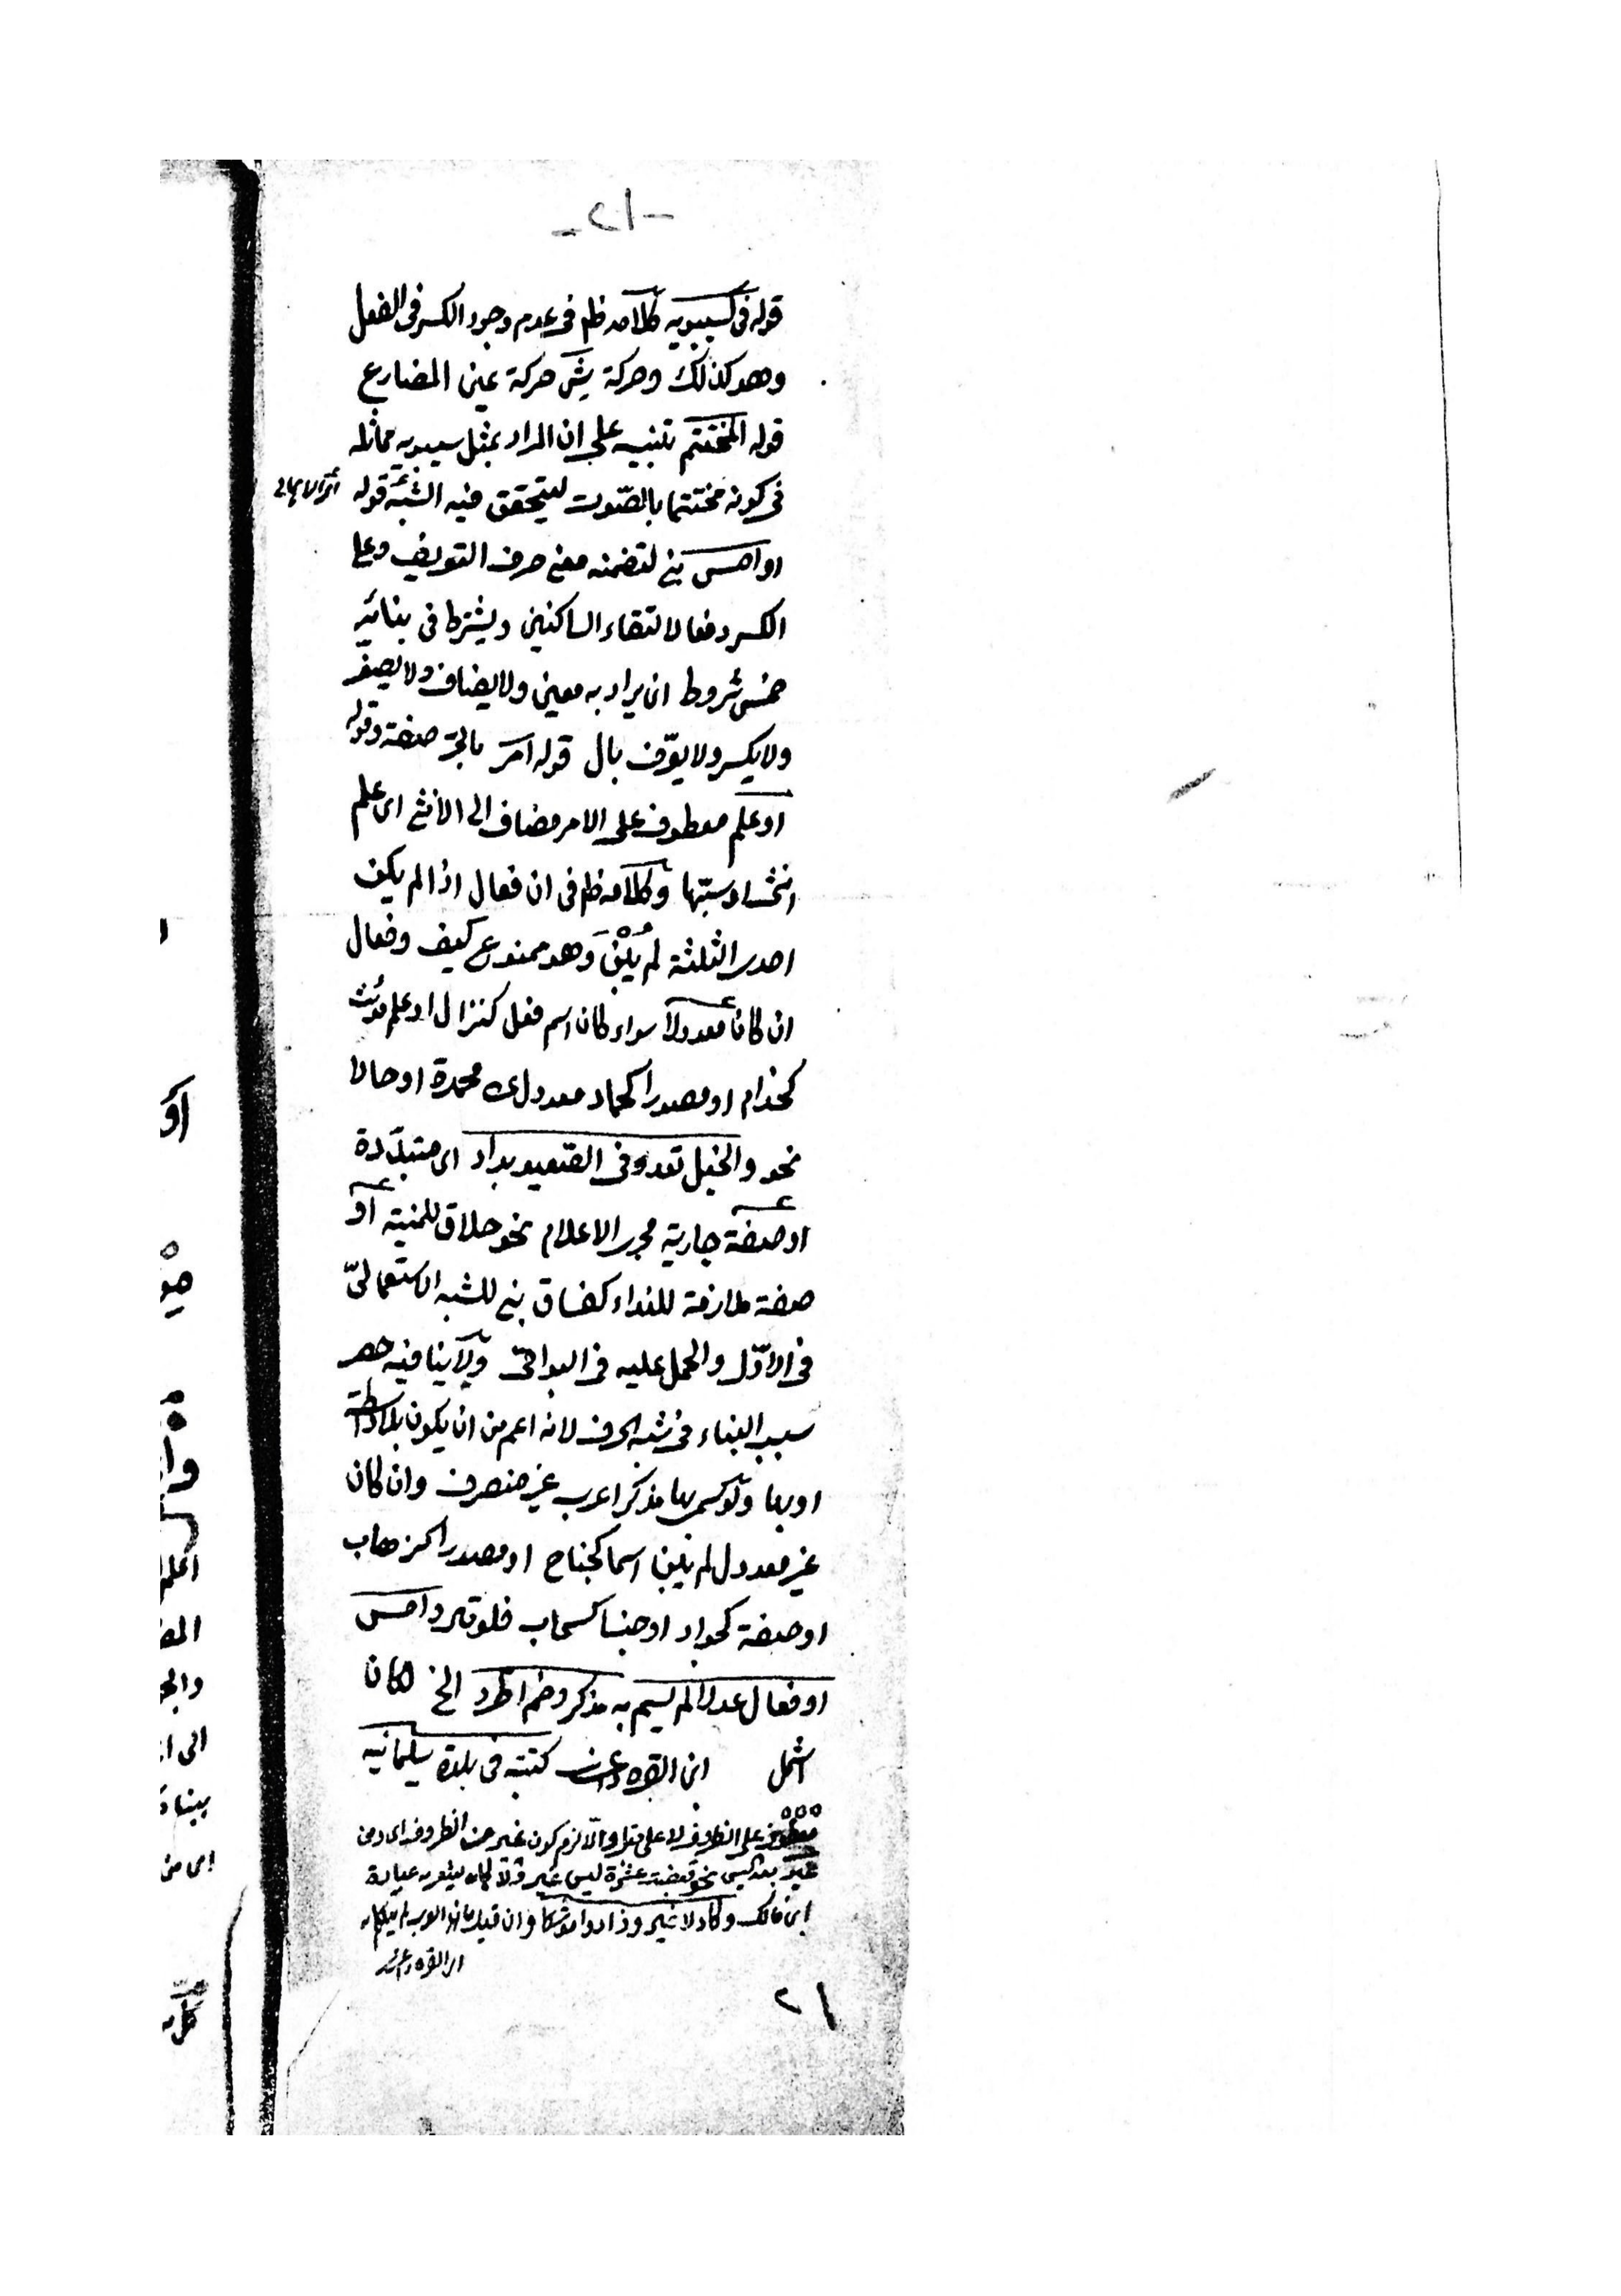 -١٢-
قوله فى كسيبويه كلامه ظم فى عدم وجود الكسر فى الفعل
وهو كذلك وحركة يشِ حركة عين المضارع
قوله المختتم تنبيه على ان المراد بمثل سيبويه مماثله
فى كونه مختتما بالصّوت ليتحقق فيه الشبه قوله
او امس بنى لتضمنه معنى حرف التعريف وعلى
الكسر دفعا لالتقاء الساكنين ويشترط فى بنائه
خمس شروط ان يراد به معين ولا يضاف ولا يصغر
ولا يكسر ولا يعرّف بال قوله امر بالجرّ صفة وقوله
او علم معطوف على الامر مضاف الى الأنثى اى علم
انثى او سبّها وكلامه ظم فى ان فعال اذا لم يكن
احدى الثلثة لم يُبْنَ وهو ممنوع كيف وفعال
ان كان معدولا سواء كان اسم فعل كنزال او علم مؤنث
كحذام او مصدرا كحماد معدول محمدة او حالا
نحو والخيل تعدو فى الصعيد بداد اى متبدّدة
او صفة جارية مجرى الاعلام نحو حلاق للمنية او
صفة ملازمة للنداء كفساق بنى للشبه الاستعمالىّ
فى الاوّل والحمل عليه فى البواقى ولا ينافيه حصر
سبب البناء فى شبه الحرف لانه اعم من ان يكون بلا واسطة
او بها ولو سمى بها مذكر اعرب غير منصرف وان كان
غير معدول لم يبن اسما كجناح او مصدرا كذهاب
او صفة كجواد او جنسا كسحاب فلو قال وامس
او فعال عدلا لم يسم به مذكر وضم اطرد الخ لكان
اشمل ابن القره داغى كتبته فى بلدة سليمانيه
معطوف على الظروف لا على قبل والّا لزم كون غير من الظروف اى ومن
غير بعد ليس نحو قبضت عشرة ليس غير
ابن مالك وكاد لا غير
ابن القره داغى
٢١